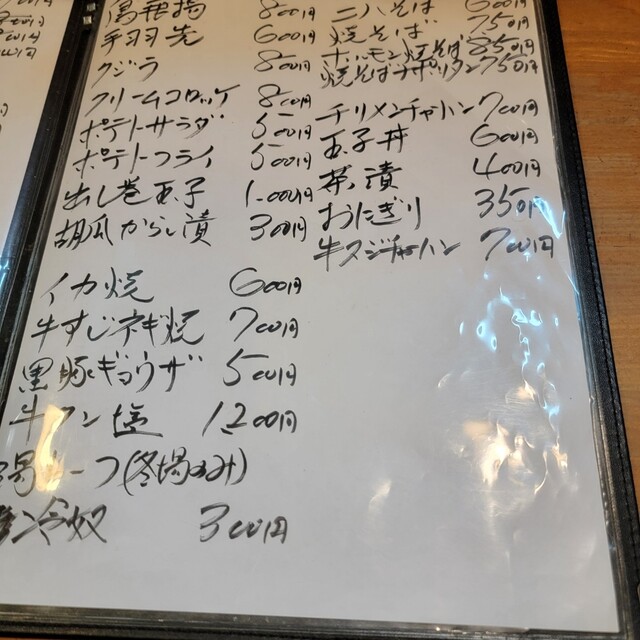 唐揚 800円
手羽先 600円
クジラ 800円
クリームコロッケ 800円
ポテトサラダ 500円
ポテトフライ 500円
出し巻玉子 1,000円
胡瓜からし漬 300円
イカ焼 600円
牛すじネギ焼 700円
黒豚ギョウザ 500円
牛タン塩 1,200円
(冬場のみ)
冷奴 300円
二八そば 600円
焼そば 750円
ホルモン焼そば 850円
焼そばナポリタン 750円
チリメンチャーハン 700円
玉子丼 600円
茶漬 400円
おにぎり 350円
牛スジチャーハン 700円